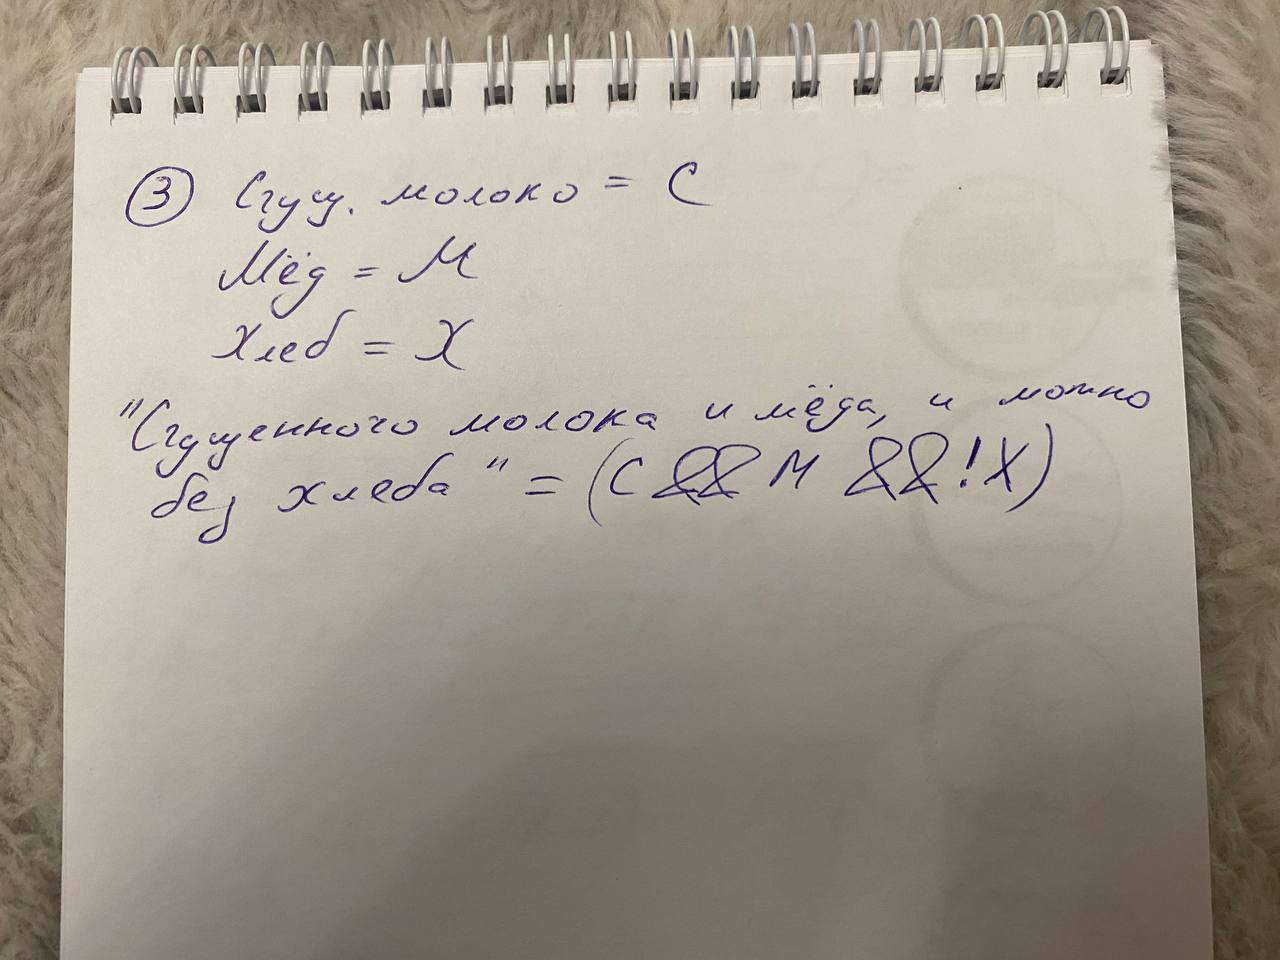 ③ Сгущ. молоко = С
Мёд = М
Хлеб = Х
"Сгущенного молока и мёда, и можно
без хлеба" = (С && М && !Х)